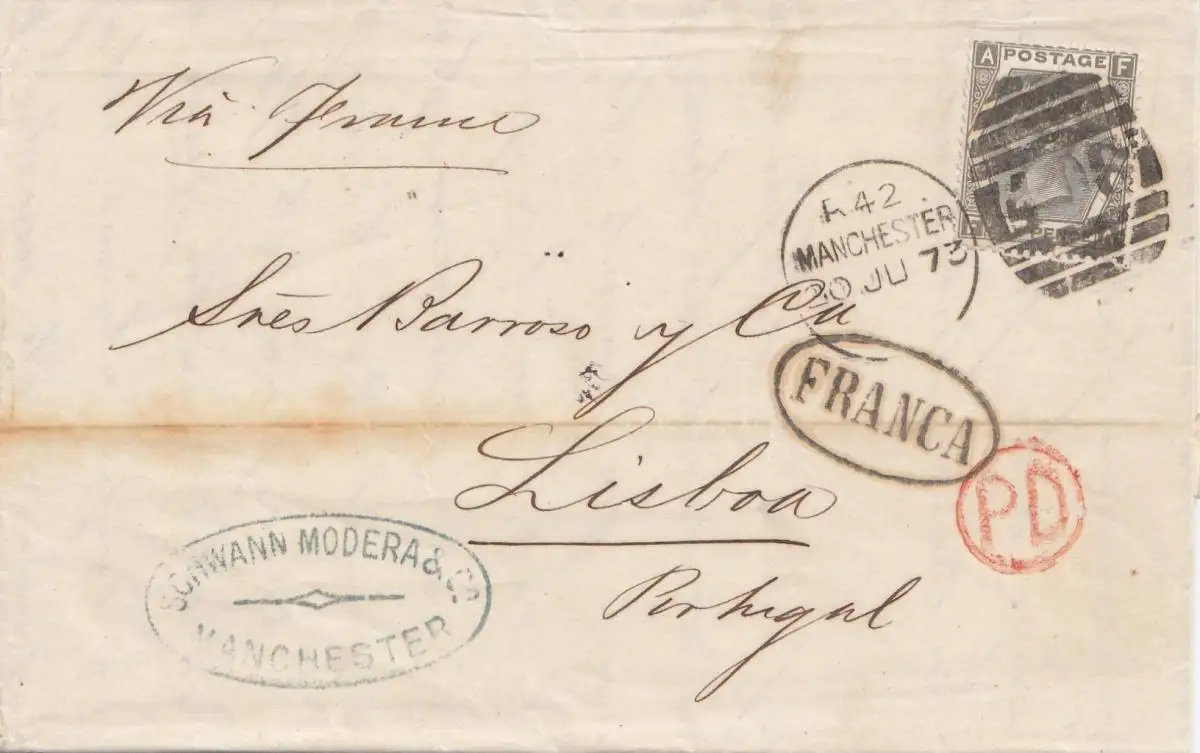 A POSTAGE F
Viâ France
R 42
MANCHESTER
30 JU 73
Snrs Barroso y Ca
FRANCA
Lisboa
PD
SCHWANN MODERA & Co.
MANCHESTER
Portugal